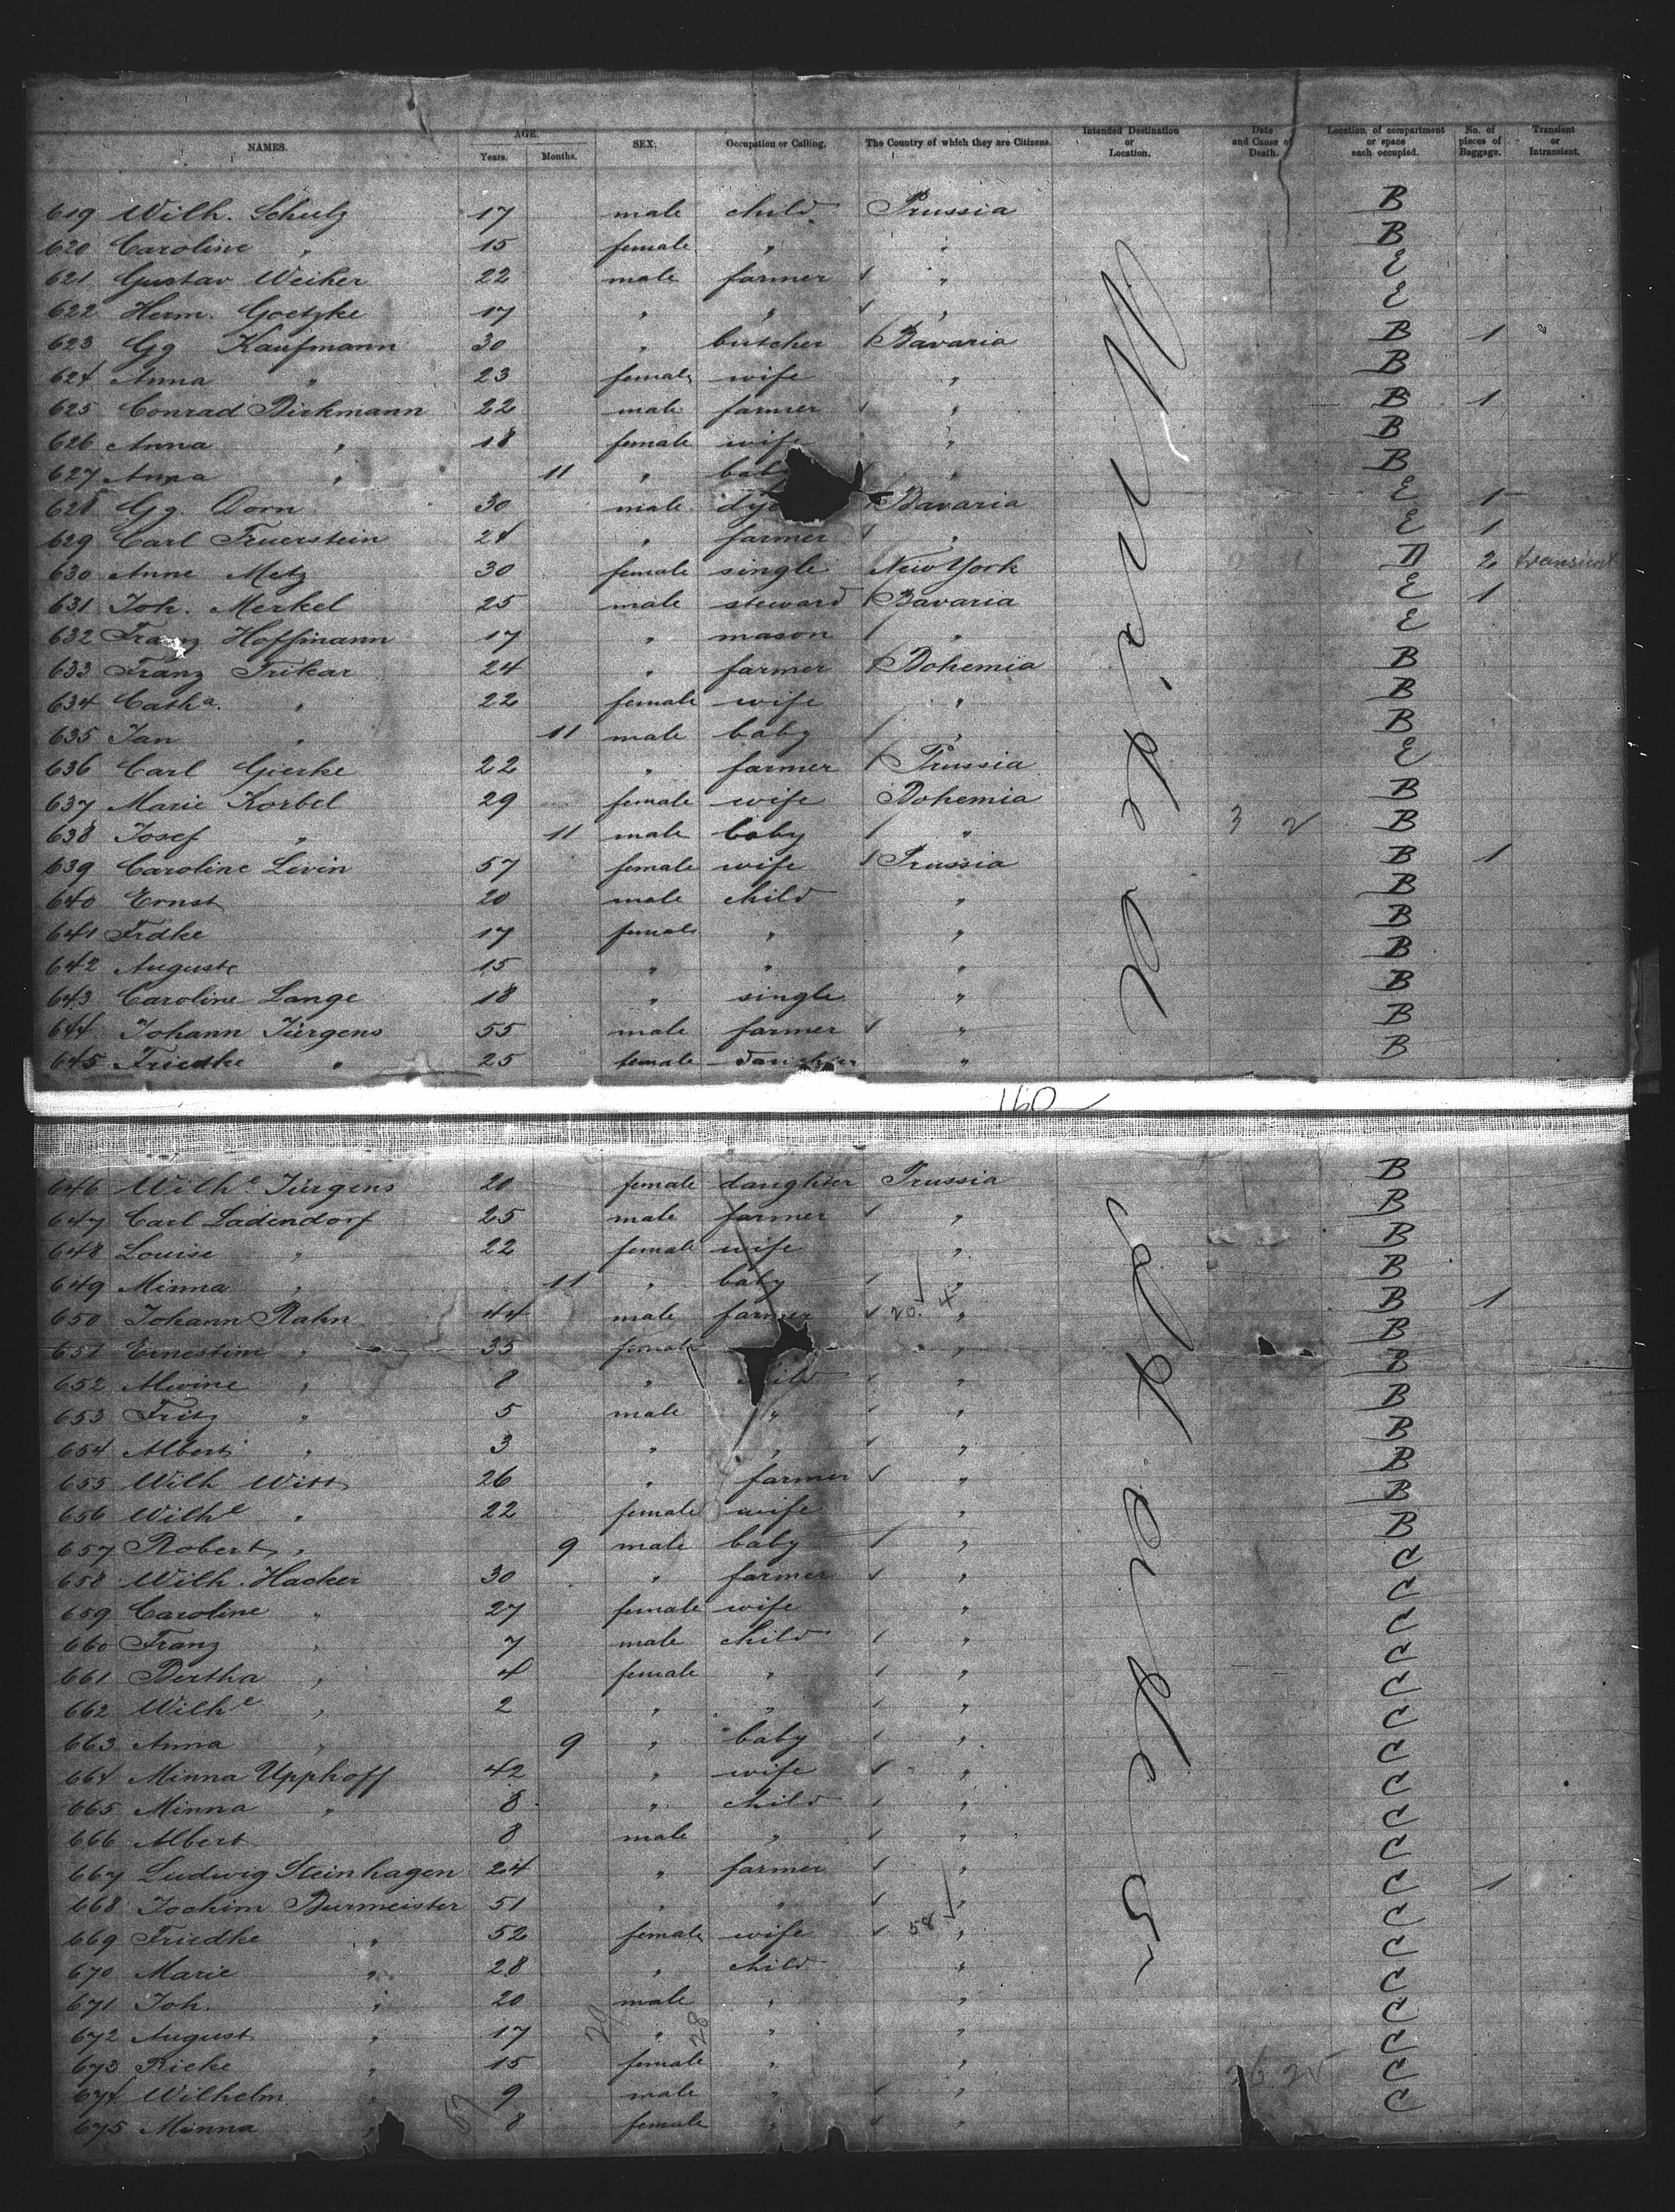 NAMES. AGE. Years. Months. SEX. Occupation or Calling. The Country of which they are Citizens. Intended Destination or Location. Date and Cause of Death. Location of compartment or space each occupied. No. of pieces of Baggage. Transient or Intransient.
619 Wilh. Schulz 17 male child Prussia B
620 Caroline " 15 female " " B
621 Gustav Weiker 22 male farmer " E
622 Herm. Goetzke 17 " " " E
623 Gg Kaufmann 30 " butcher Bavaria B 1
624 Anna " 23 female wife " B
625 Conrad Birkmann 22 male farmer " B 1
626 Anna " 18 female wife " B
627 Anna " 11 " baby " B
628 Gg. Dorn 30 male dye Bavaria E 1
629 Carl Feuerstein 24 " farmer " E 1
630 Anne Metz 30 female single New York II 2 transient
631 Joh. Merkel 25 male steward Bavaria E 1
632 Franz Hoffmann 17 " mason " E
633 Franz Trikar 24 " farmer Bohemia B
634 Catha. " 22 female wife " B
635 Jan " 11 male baby " B
636 Carl Gierke 22 " farmer Prussia E
637 Marie Korbel 29 female wife Bohemia B
638 Josef " 11 male baby " 3 2 B
639 Caroline Levin 57 female wife Prussia B 1
640 Ernst 20 male child " B
641 Frdke 17 female " " B
642 Auguste 15 " " " B
643 Caroline Lange 18 " single " B
644 Johann Jürgens 55 male farmer " B
645 Friedke " 25 female daughter " B
160
646 Wilhe Jürgens 20 female daughter Prussia B
647 Carl Ladendorf 25 male farmer " B
648 Louise " 22 female wife " B
649 Minna " 11 " baby " B
650 Johann Rahn 44 male farmer 20 4 " B 1
651 Ernestine " 35 female " B
652 Alwine " 8 " child " B
653 Fritz " 5 male " " B
654 Albert " 3 " " " B
655 Wilh Witt 26 " farmer " B
656 Wilhe " 22 female wife " B
657 Robert " 9 male baby " B
658 Wilh. Hacker 30 " farmer " C
659 Caroline " 27 female wife " C
660 Franz " 7 male child " C
661 Bertha " 4 female " " C
662 Wilhe " 2 " " " C
663 Anna " 9 " baby " C
664 Minna Upphoff 42 " wife " C
665 Minna " 8 " child " C
666 Albert 8 male " " C
667 Ludwig Steinhagen 24 " farmer " C
668 Jochim Burmeister 51 " " " C 1
669 Friedke " 52 female wife 58 " C
670 Marie " 28 " child " C
671 Joh. " 20 male " " C
672 August " 17 " " " C
673 Rieke " 15 female " " C
674 Wilhelm " 9 male " " C
675 Minna " 8 female " "